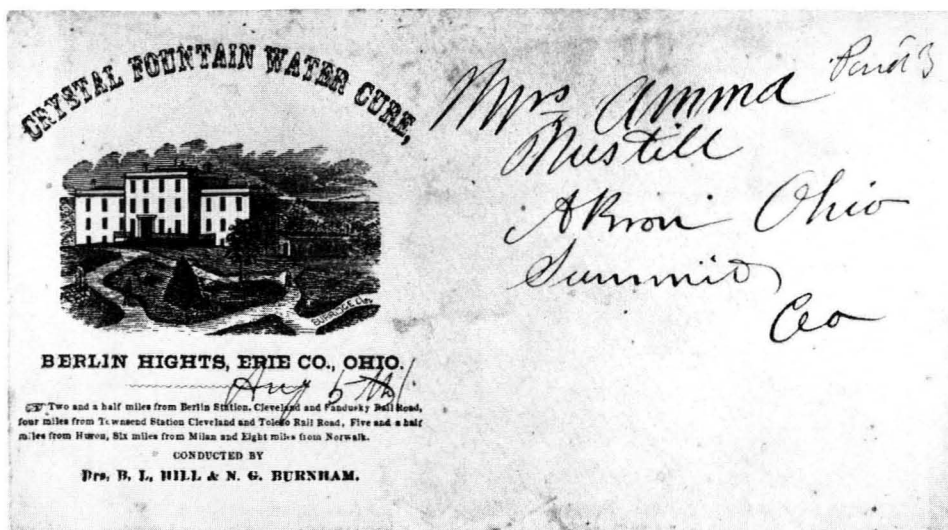 CRYSTAL FOUNTAIN WATER CURE,
BURRIDGE
BERLIN HIGHTS, ERIE CO., OHIO.
Aug 5th
☞ Two and a half miles from Berlin Station. Cleveland and Sandusky Rail Road,
four miles from Townsend Station Cleveland and Toledo Rail Road, Five and a half
miles from Huron, Six miles from Milan and Eight miles from Norwalk.
CONDUCTED BY
Drs. B. L. HILL & N. G. BURNHAM.
Paid 3
Mrs Amma
Mustill
Akron Ohio
Summit
Co